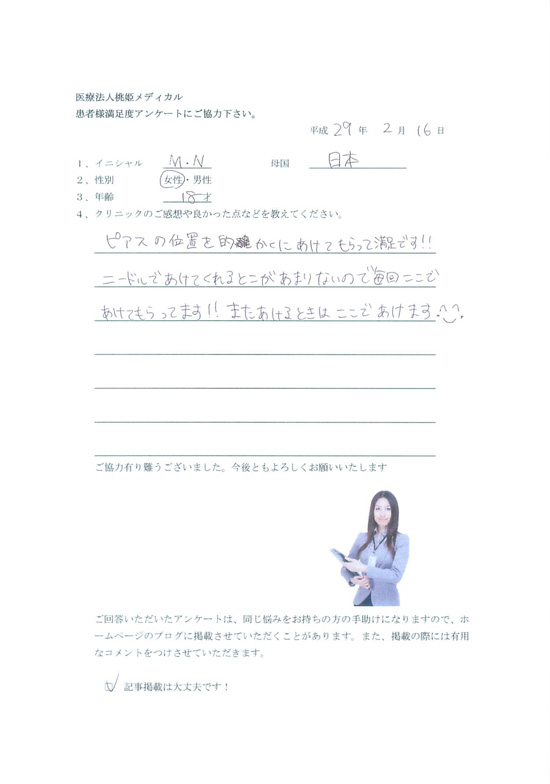 医療法人桃姫メディカル
患者様満足度アンケートにご協力下さい。
平成 29 年 2 月 16 日
1、イニシャル M.N 母国 日本
2、性別 女性・男性
3、年齢 18才
4、クリニックのご感想や良かった点などを教えてください。
ピアスの位置を的確かくにあけてもらって満足です!!
ニードルであけてくれるとこがあまりないので毎回ここで
あけてもらってます!! またあけるときはここであけます
ご協力有り難うございました。今後ともよろしくお願いいたします
ご回答いただいたアンケートは、同じ悩みをお持ちの方の手助けになりますので、ホ
ームページのブログに掲載させていただくことがあります。また、掲載の際には有用
なコメントをつけさせていただきます。
記事掲載は大丈夫です!